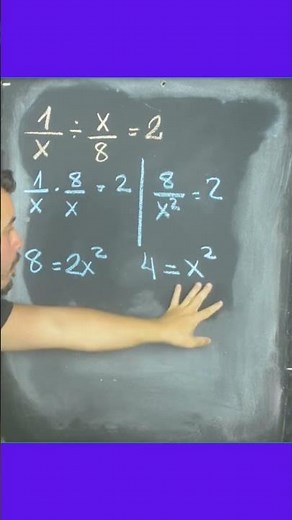 1/x ÷ x/8 = 2
1/x · 8/x = 2 | 8/x² = 2
8 = 2x² 4 = x²